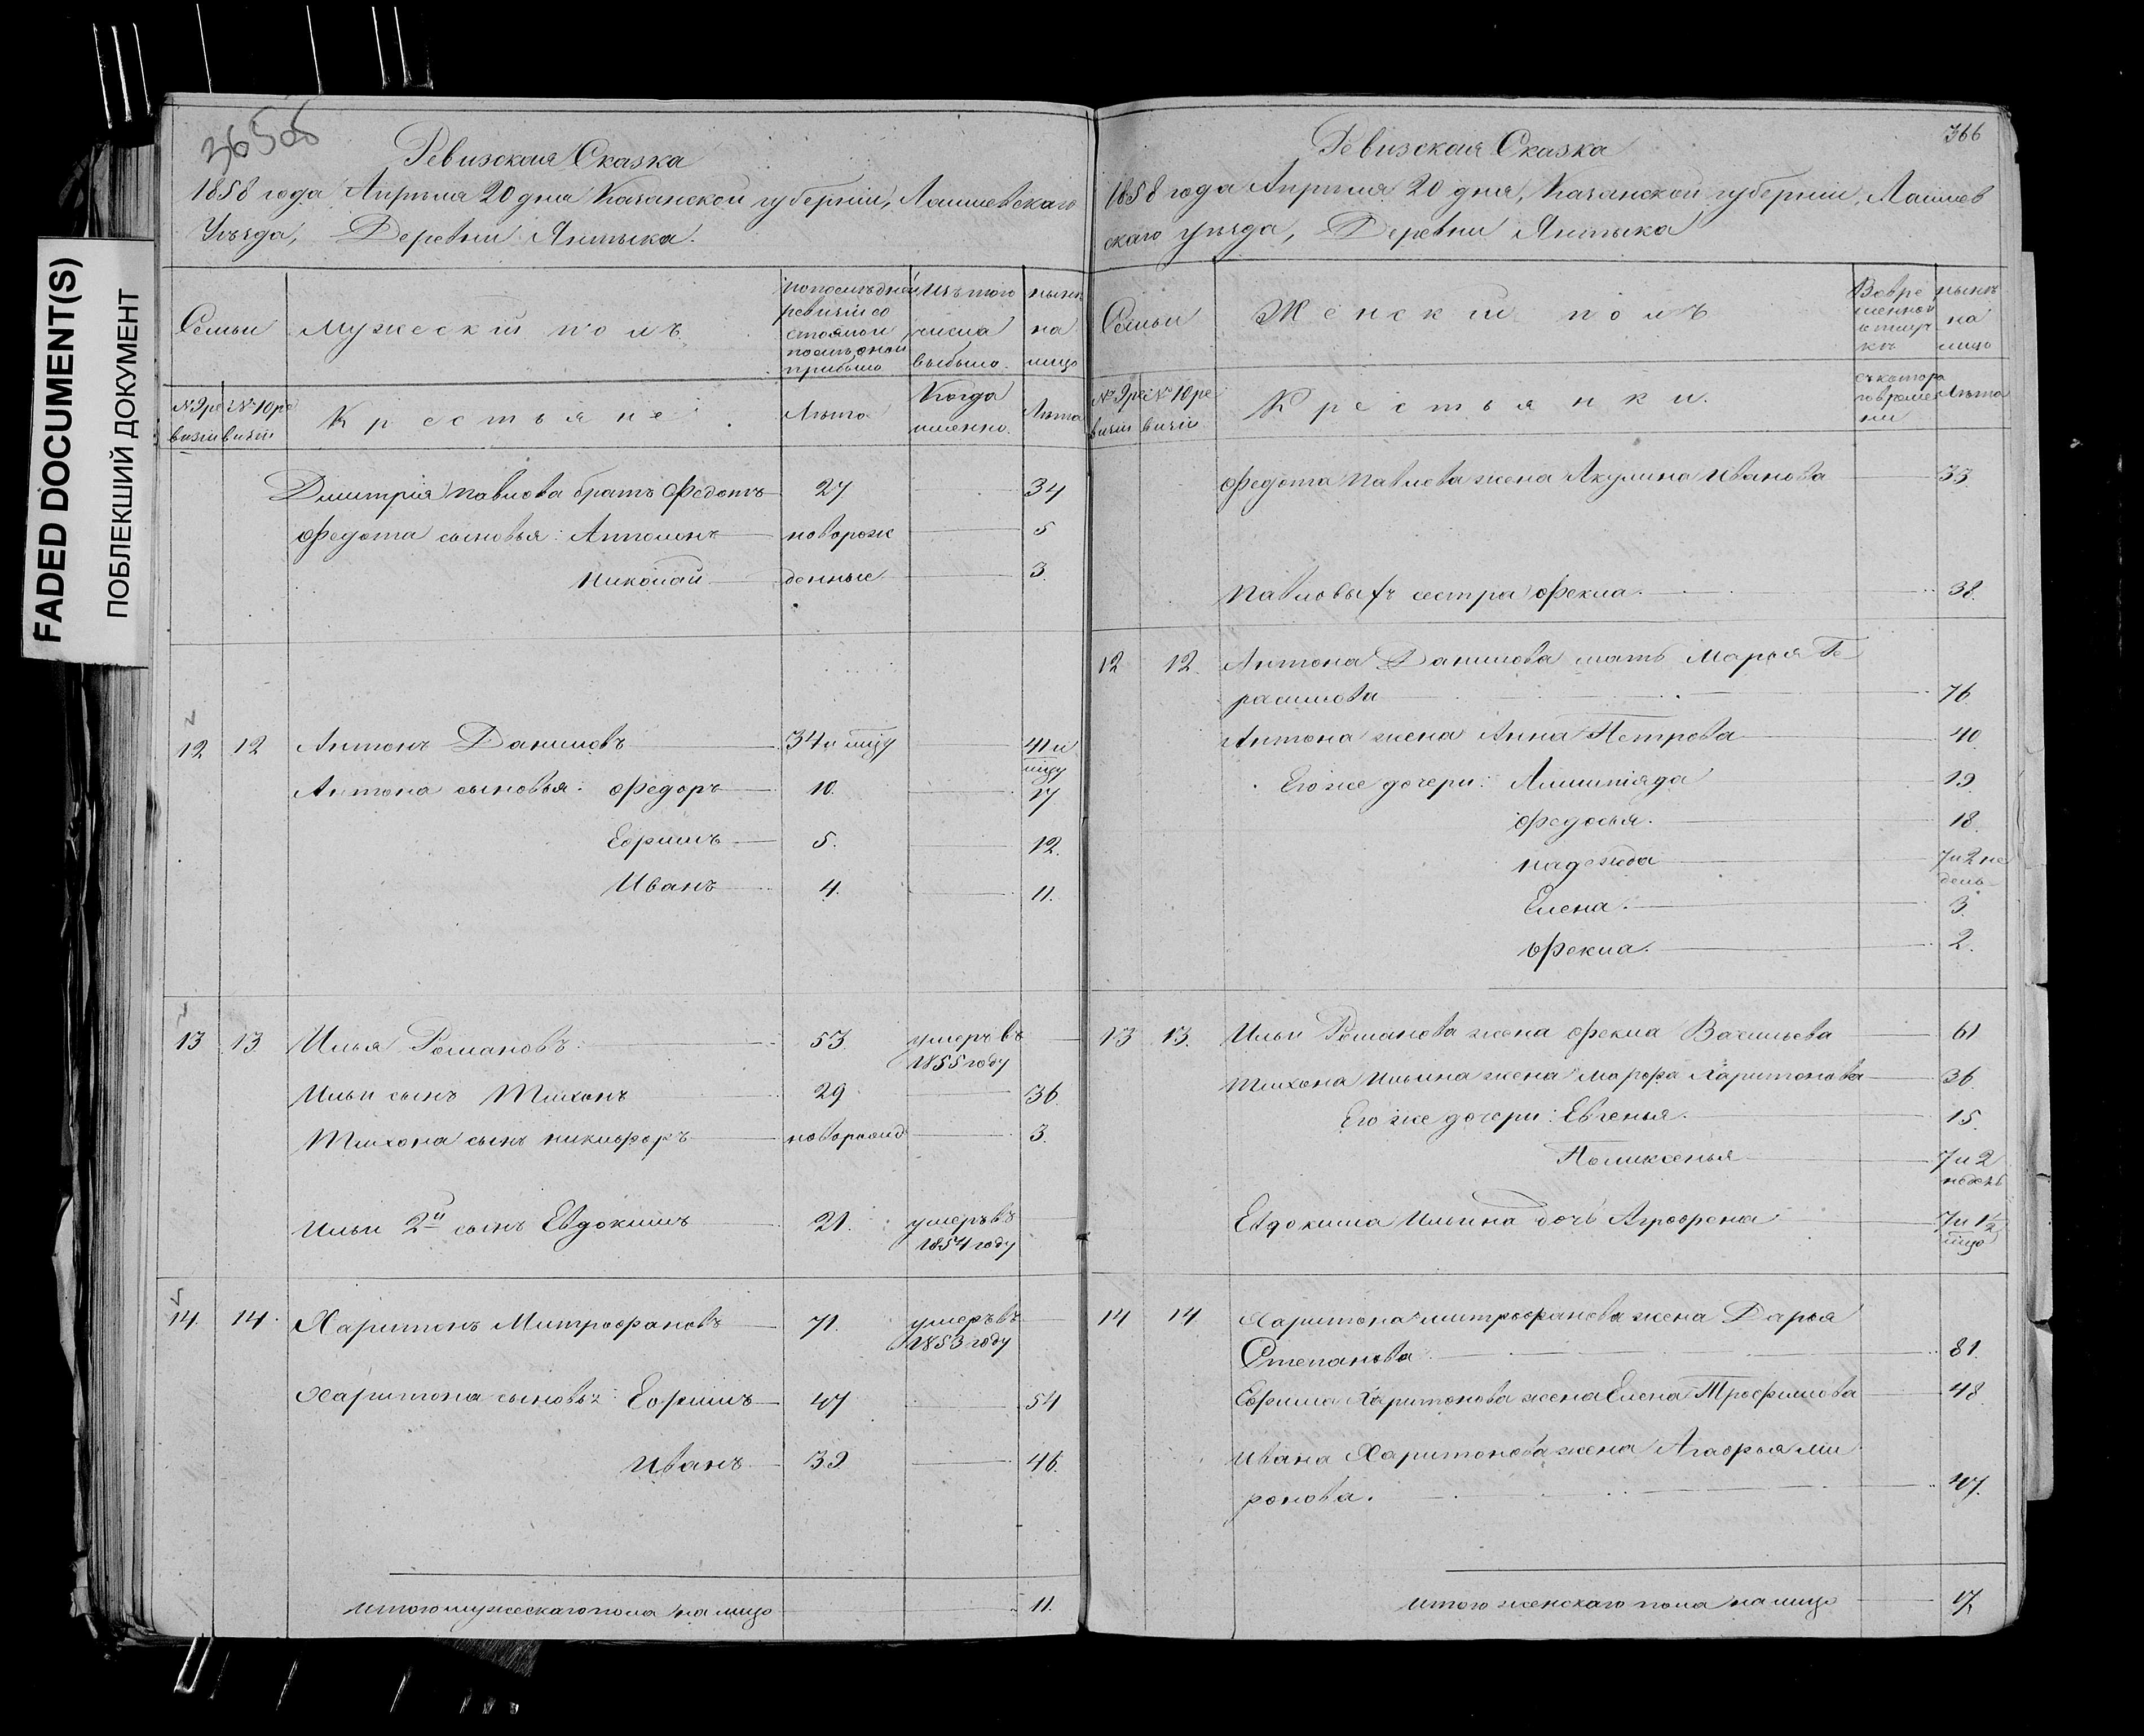 FADED DOCUMENT(S)
ПОБЛЕКШИЙ ДОКУМЕНТ
Ревизская Сказка
1858 года Апрѣля 20 дня Казанской губерніи, Лаишевскаго
Уѣзда, Деревни Янтыка.
Семьи
Мужескій полъ.
по послѣдней
ревизіи со
стояло и
послѣ оной
прибыло
Изъ того
числа
выбыло.
нынѣ
на
лицо
№ 9 ре
визіи
№ 10 ре
визіи
Крестьяне
Лѣта
Когда
именно.
Лѣта
Дмитрія Павлова братъ Федотъ 27 34
Федота сыновья: Антонъ новорож 5
Николай денные 3.
12 12 Антонъ Даниловъ 34 и мцу 41 и
мцу
Антона сыновья: Федоръ 10. 17
Ефримъ 5. 12.
Иванъ 4. 11.
13 13 Илья Романовъ 53 умеръ въ
1855 году
Ильи сынъ Тихонъ 29 36.
Тихона сынъ Никифоръ новорожд 3.
Ильи 2й сынъ Евдокимъ 21. умеръ въ
1854 году
14. 14. Харитонъ Митрофановъ 71. умеръ въ
1853 году
Харитона сыновья: Ефримъ 47 54
Иванъ 39 46.
Итого мужескаго пола на лицо 11.
366
Ревизская Сказка
1858 года Апрѣля 20 дня, Казанской губерніи, Лаишев
скаго уѣзда, Деревни Янтыка
Семьи
Женскій полъ
Во вре
менной
отлуч
кѣ
нынѣ
на
лицо
№ 9 ре
визіи
№ 10 ре
визіи
Крестьянки.
съ котора
го време
ни
Лѣта
Федота Павлова жена Акулина Иванова 33
Павловыхъ сестра Фекла. 38.
12 12. Антона Данилова мать Марфа Ге
расимова 76
Антона жена Анна Петрова 40
Его же дочери: Алимпіяда 19
Федосья. 18.
Надежда 7 и 2 не
дель
Елена. 3.
Фекла. 2.
13 13. Ильи Романова жена Фекла Васильева 61
Тихона Ильина жена Марфа Харитонова 36.
Его же дочери: Евгенья. 15.
Поликсенья 7 и 2
недель
Евдокима Ильина дочь Агрофена 7 и 1½
мцо
14 14 Харитона Митрофанова жена Дарья
Степанова 81.
Ефрима Харитонова жена Елена Трофимова 48.
Ивана Харитонова жена Агафья Ми
ронова. 47.
Итого женскаго пола на лицо 17.